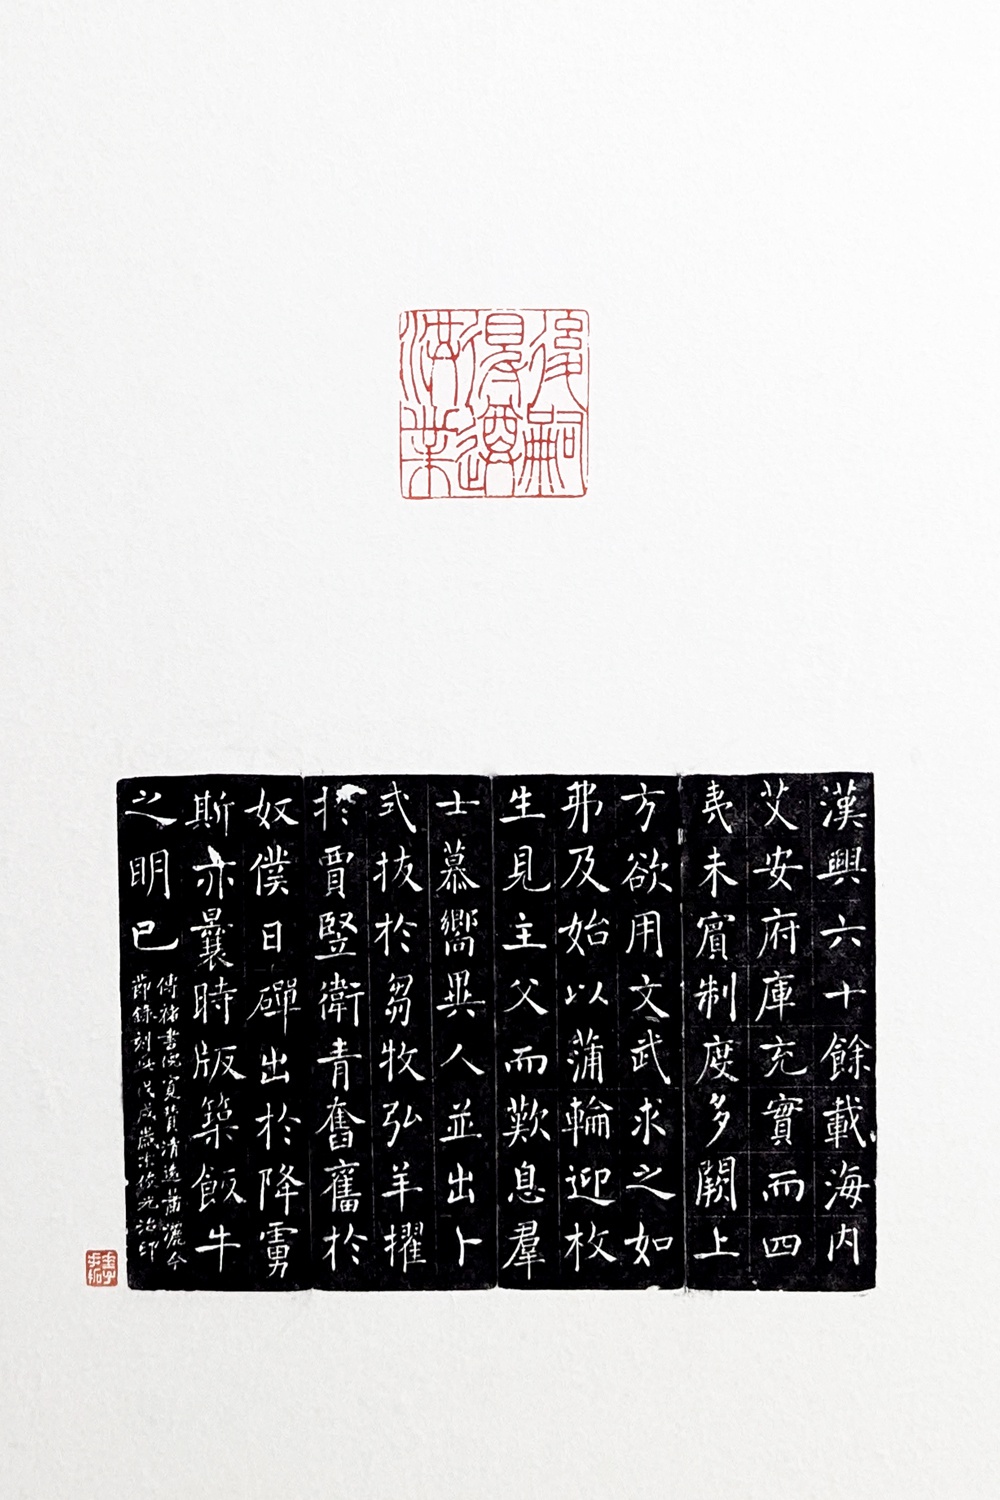 後嗣
得遵
洪業
漢興六十餘載海内
艾安府庫充實而四
夷未賓制度多闕上
方欲用文武求之如
弗及始以蒲輪迎枚
生見主父而歎息羣
士慕嚮異人並出卜
式拔於芻牧弘羊擢
於賈豎衛青奮舊於
奴僕日磾出於降虜
斯亦曩時版築飯牛
之明已
褚書倪寬贊清遠蕭灑今
節錄刻此戊戌歲末俊光治印